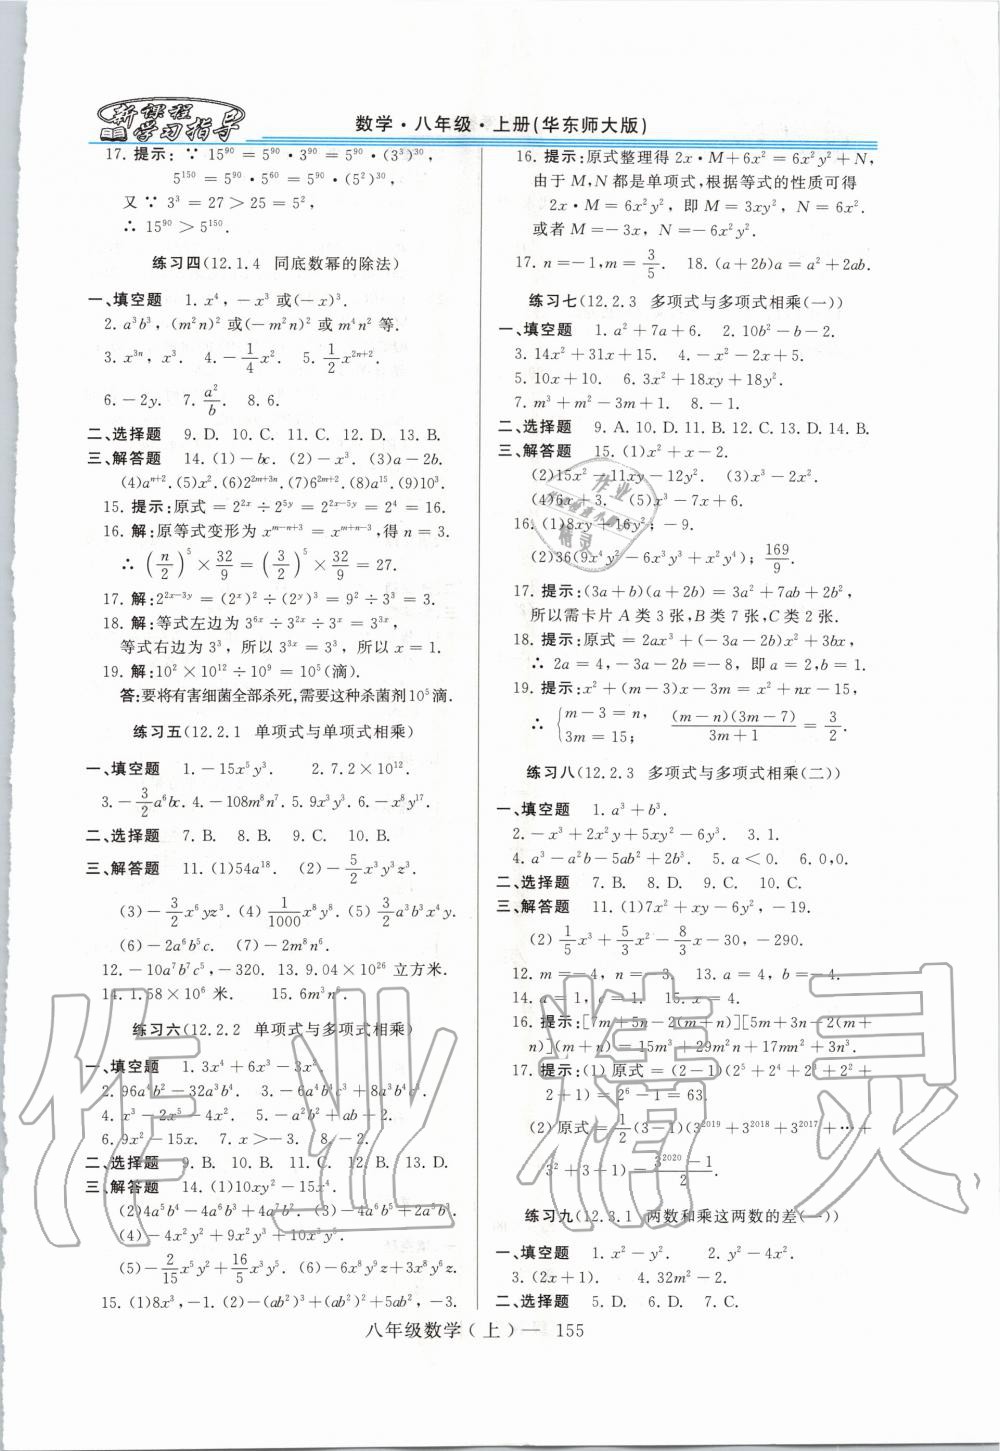 新课程
学习指导
数学·八年级·上册(华东师大版)
17. 提示: ∵ 15⁹⁰ = 5⁹⁰ · 3⁹⁰ = 5⁹⁰ · (3³)³⁰,
5¹⁵⁰ = 5⁹⁰ · 5⁶⁰ = 5⁹⁰ · (5²)³⁰,
又 ∵ 3³ = 27 > 25 = 5²,
∴ 15⁹⁰ > 5¹⁵⁰.
练习四(12.1.4 同底数幂的除法)
一、填空题 1. x⁴, −x³ 或(−x)³.
2. a³b³, (m²n)² 或(−m²n)² 或 m⁴n² 等.
3. x³ⁿ, x³. 4. −1/4 x². 5. 1/2 x²ⁿ⁺².
6. −2y. 7. a²/b. 8. 6.
二、选择题 9. D. 10. C. 11. C. 12. D. 13. B.
三、解答题 14. (1)−bc. (2)−x³. (3)a−2b.
(4)aⁿ⁺². (5)x². (6)2²ᵐ⁺³ⁿ. (7)6²ᵐ⁺². (8)a¹⁵. (9)10³.
15. 提示: 原式 = 2²ˣ ÷ 2⁵ʸ = 2²ˣ⁻⁵ʸ = 2⁴ = 16.
16. 解: 原等式变形为 xᵐ⁻ⁿ⁺³ = xᵐ⁺ⁿ⁻³, 得 n = 3.
∴ (n/2)⁵ × 32/9 = (3/2)⁵ × 32/9 = 27.
17. 解: 2²ˣ⁻³ʸ = (2ˣ)² ÷ (2ʸ)³ = 9² ÷ 3³ = 3.
18. 解: 等式左边为 3⁶ˣ ÷ 3²ˣ ÷ 3ˣ = 3³ˣ,
等式右边为 3³, 所以 3³ˣ = 3³, 所以 x = 1.
19. 解: 10² × 10¹² ÷ 10⁹ = 10⁵(滴).
答:要将有害细菌全部杀死,需要这种杀菌剂10⁵滴.
练习五(12.2.1 单项式与单项式相乘)
一、填空题 1. −15x⁵y³. 2. 7.2×10¹².
3. −3/2 a⁶bc. 4. −108m⁸n⁷. 5. 9x³y³. 6. −x⁸y⁷.
二、选择题 7. B. 8. B. 9. C. 10. B.
三、解答题 11. (1)54a¹⁸. (2)−5/2 x³y³z³.
(3)−3/2 x⁶yz³. (4) 1/1000 x⁸y⁸. (5) 3/2 a³b³x⁴y.
(6)−2a⁶b⁵c. (7)−2m⁸n⁶.
12. −10a⁷b⁷c⁵, −320. 13. 9.04×10²⁶ 立方米.
14. 1.58×10⁶ 米. 15. 6m³n⁵.
练习六(12.2.2 单项式与多项式相乘)
一、填空题 1. 3x⁴+6x³−3x².
2. 96a⁴b²−32a³b³. 3. −6a³b⁴c³+8a³b³c².
4. x³−2x⁵−4x². 5. −2a³b²+ab−2.
6. 9x²−15x. 7. x>−3. 8. 1.
二、选择题 9. B. 10. B. 11. C. 12. B. 13. D.
三、解答题 14. (1)10xy²−15x⁴.
(2)4a⁵b⁴−4a⁶b³+4a⁷b². (3)−4a⁶b⁵+2a⁵b⁶.
(4)−4x²y²+9x²y+2xy².
(5)−2/15 x⁵y²+16/5 x³y³. (6)−6x⁸y³−6x³y⁴.
15. (1)8x³, −1. (2)−(ab²)³+(ab²)²+5ab², −3.
16. 提示: 原式整理得 2x·M+6x² = 6x²y²+N,
由于 M,N 都是单项式, 根据等式的性质可得
2x·M = 6x²y², 即 M = 3xy², N = 6x².
或者 M=−3x, N=−6x²y².
17. n=−1, m=3/5. 18. (a+2b)a = a²+2ab.
练习七(12.2.3 多项式与多项式相乘(一))
一、填空题 1. a²+7a+6. 2. 10b²−b−2.
3. 14x²+31x+15. 4. −x²−2x+5.
5. 10x+10. 6. 3x²+18xy+18y².
7. m³+m²−3m+1. 8. −1.
二、选择题 9. A. 10. D. 11. B. 12. C. 13. B. 14. B.
三、解答题 15. (1)x²+x−2.
(2)15x²−11xy−12y². (3)x²−x.
(4)6x+3. (5)x³−7x−6.
16. (1)8xy+16y²; −9.
(2)36(9x⁴y²−6x³y³+x²y⁴); 169/9.
17. 提示: (3a+b)(a+2b) = 3a²+7ab+2b²,
所以需卡片 A 类 3 张, B 类 7 张, C 类 2 张.
18. 提示: 原式 = 2ax³+(−3a−2b)x²+3bx,
∴ 2a=4, −3a−2b=−8, 即 a=2, b=1.
19. 提示: x²+(m−3)x−3m = x²+nx−15,
∴ {m−3=n, 3m=15. (m−n)(3m−7)/(3m+1) = 3/2.
练习八(12.2.3 多项式与多项式相乘(二))
一、填空题 1. a³+b³.
2. −x³+2x²y+5xy²−6y³. 3. 1.
4. a³−a²b−5ab²+2b³. 5. a<0. 6. 0,0.
二、选择题 7. B. 8. D. 9. C. 10. C.
三、解答题 11. (1)7x²+xy−6y², −19.
(2) 1/5 x³+5/3 x²−8/3 x−30, −290.
12. m=−4, n=−3. 13. a=4.
14. a=1, c=1. 15. x=4.
16. 提示: [7m+5n−2(m+n)][5m+3n−2(m+
n)](m+n) = 15m³+29m²n+17mn²+3n³.
17. 提示: (1) 原式 = (2−1)(2⁵+2⁴+2³+2²+
2+1) = 2⁶−1 = 63.
(2) 原式 = 1/2 (3−1)(3²⁰¹⁹+3²⁰¹⁸+3²⁰¹⁷+…+
3²+3+1) = (3²⁰²⁰−1)/2.
练习九(12.3.1 两数和乘这两数的差(一))
一、填空题 1. x²−y². 2. y²−4x².
3. (2x+1). 4. 32m²−2.
二、选择题 5. D. 6. D. 7. C.
八年级数学(上)— 155
作业精灵